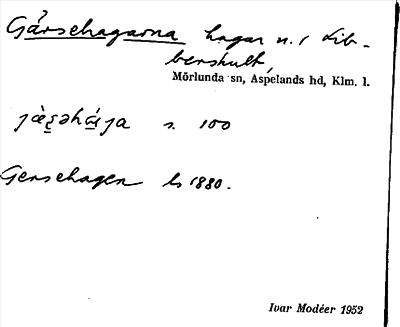 Gårsehagarna hagar n. /
bershult,
Mörlunda sn, Aspelands hd, Klm. l.
s. 100
Gersehagen ls 1880.
Ivar Modéer 1952